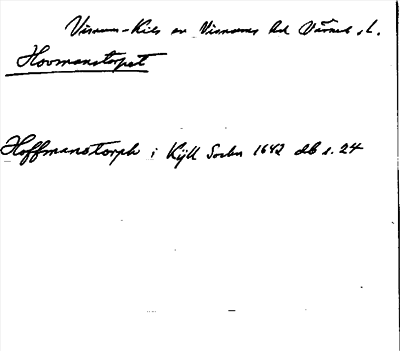 Visnum-Kils sn Visnums hd Värml. l.
Hovmanstorpet
Hoffmanstorph i Kijll Sochn 1642 db s. 24